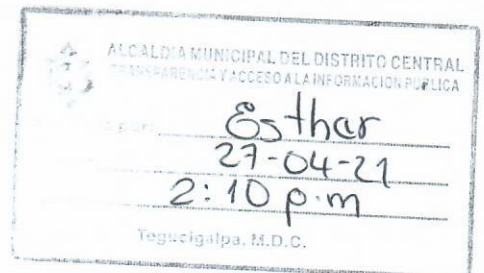 ALCALDIA MUNICIPAL DEL DISTRITO CENTRAL
TRANSPARENCIA Y ACCESO A LA INFORMACION PUBLICA
por: Esthar
27-04-21
2:10 p.m
Tegucigalpa, M.D.C.